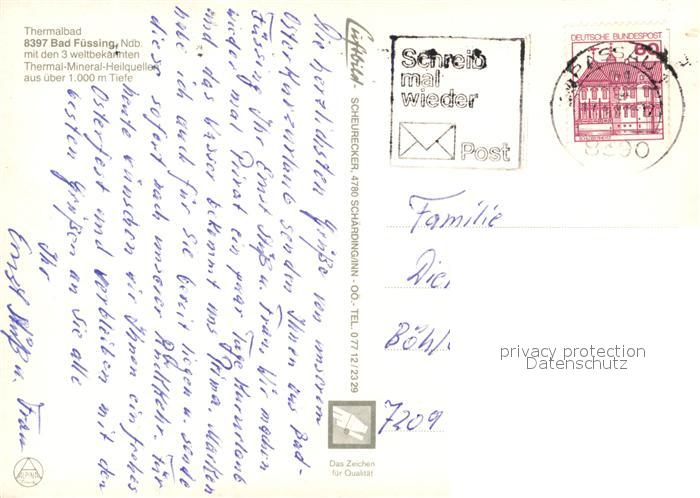 Thermalbad
8397 Bad Füssing, Ndb.
mit den 3 weltbekannten
Thermal-Mineral-Heilquellen
aus über 1.000 m Tiefe
Die herzlichsten Grüße von unserem
Osterkurzurlaub senden Ihnen aus Bad-
Füssing Ihr Ernst u. Frau. Wir machen
wieder mal Privat ein paar Tage Kururlaub
und das Wasser bekommt uns Prima. Marken
habe ich auch für Sie bereit liegen u. sende
diese sofort nach unserer Rückkehr. Für
heute wünschen wir Ihnen ein frohes
Osterfest und verbleiben mit den
besten Grüßen an Sie alle
Ihr
Ernst u. Frau
Luftbild - SCHEURECKER, 4780 SCHÄRDING/INN - OÖ.- TEL. 0 77 12 / 23 29
Das Zeichen
für Qualität
Schreib
mal
wieder
Post
DEUTSCHE BUNDESPOST
60
PASSAU
8390
Familie
Die
Böhl
7209
privacy protection
Datenschutz